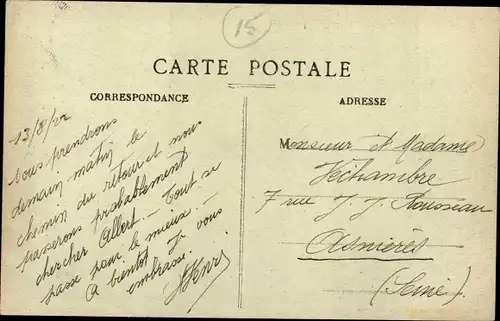 15
CARTE POSTALE
CORRESPONDANCE
13/8/22
Nous prendrons
demain matin le
chemin du retour et nous
passerons probablement
chercher Albert – Tout se
passe pour le mieux –
A bientôt – Je vous
embrasse.
ADRESSE
Monsieur et Madame
Véchambre
7 rue J. J. Rousseau
Asnières
(Seine).